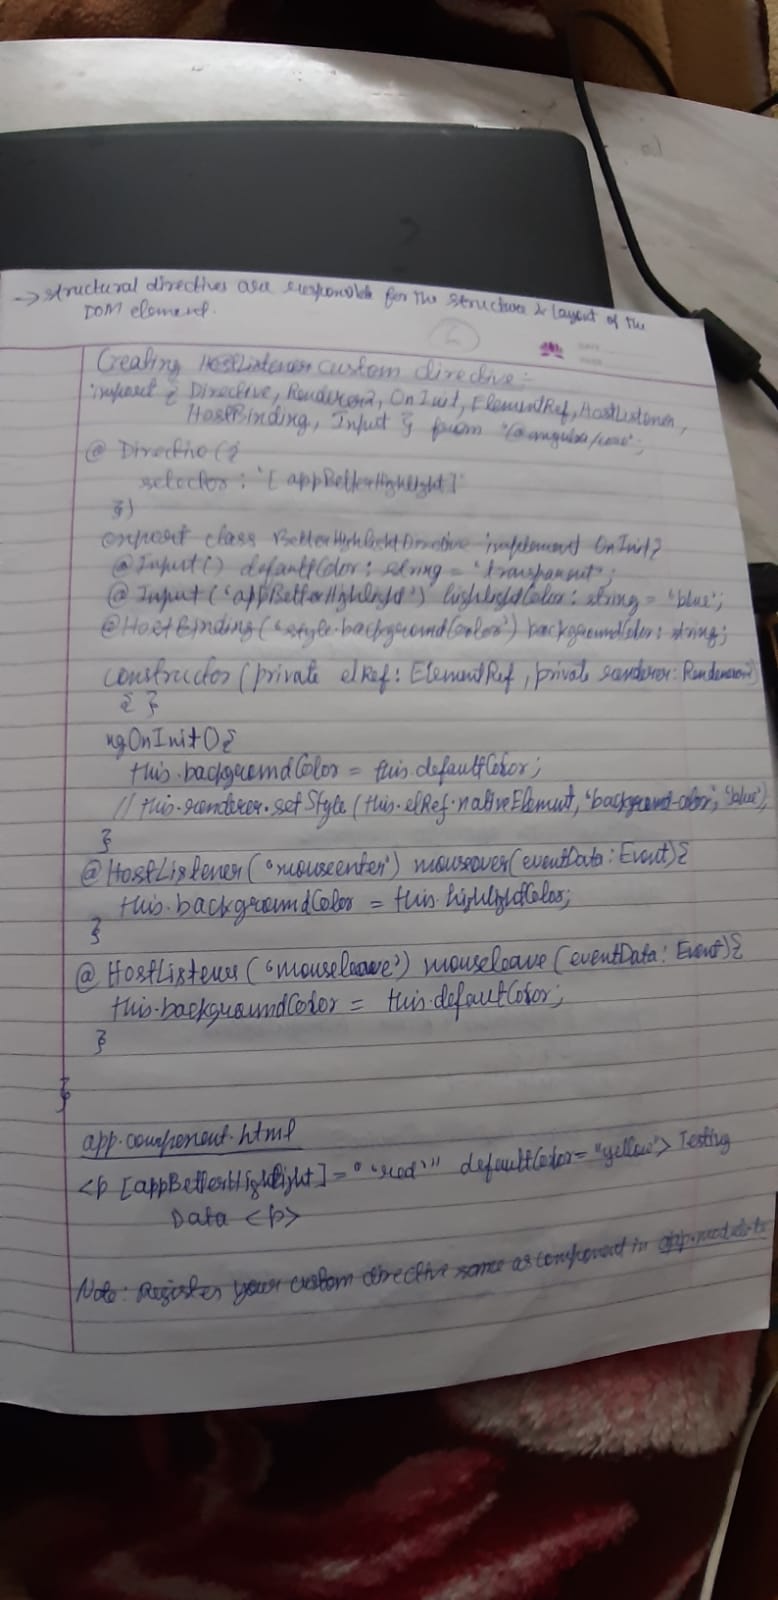 → structural directives are responsible for the structure & layout of the
DOM element.
Creating HostListener custom directive:-
import { Directive, Renderer2, OnInit, ElementRef, HostListener,
HostBinding, Input } from '@angular/core';
@ Directive({
selector: '[appBetterHighlight]'
})
export class BetterHighlightDirective implement OnInit{
@Input() defaultColor: string = 'transparent';
@Input('appBetterHighlight') highlightColor: string = 'blue';
@HostBinding('style.backgroundColor') backgroundColor: string;
constructor(private elRef: ElementRef, private renderer: Renderer2)
{ }
ngOnInit(){
this.backgroundColor = this.defaultColor;
// this.renderer.setStyle(this.elRef.nativeElement, 'background-color', 'blue')
}
@HostListener('mouseenter') mouseover(eventData: Event){
this.backgroundColor = this.highlightColor;
}
@HostListener('mouseleave') mouseleave(eventData: Event){
this.backgroundColor = this.defaultColor;
}
}
app.component.html
<p [appBetterHighlight]="'red'" defaultColor="yellow"> Testing
Data <p>
Note: Register your custom directive same as component in app.module.ts